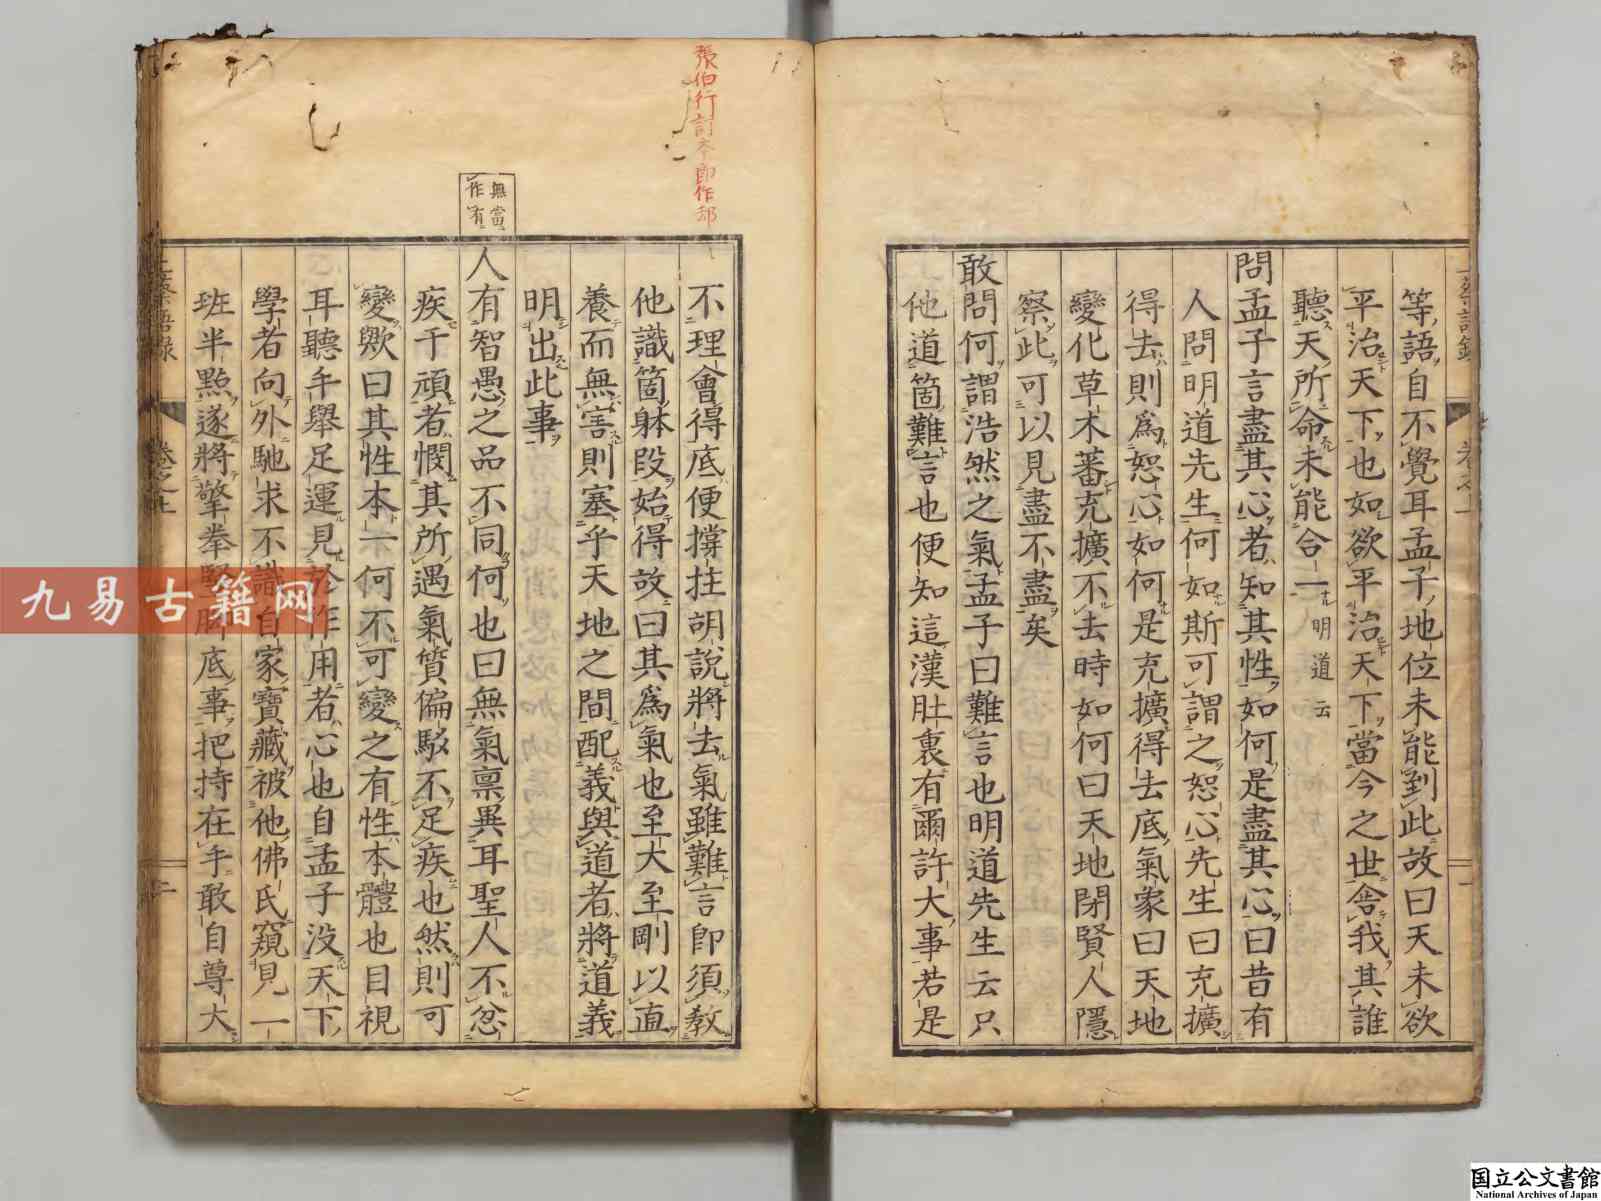 等語自不覺耳孟子地位未能到此故曰天未欲
平治天下也如欲平治天下當今之世舍我其誰
聽天所命未能合一明道云
問孟子言盡其心者知其性如何是盡其心曰昔有
人問明道先生何如斯可謂之恕心先生曰充擴
得去則爲恕心如何是充擴得去底氣象曰天地
變化草木蕃充擴不去時如何曰天地閉賢人隱
察此可以見盡不盡矣
敢問何謂浩然之氣孟子曰難言也明道先生云只
他道箇難言也便知這漢肚裏有爾許大事若是
張伯行訂本即作却
不理會得底便撐拄胡說將去氣雖難言即須教
他識箇躰段始得故曰其爲氣也至大至剛以直
養而無害則塞乎天地之間配義與道者將道義
明出此事
無當
作有
人有智愚之品不同何也曰無氣禀異耳聖人不忿
疾于頑者憫其所遇氣質偏駁不足疾也然則可
變歟曰其性本一何不可變之有性本體也目視
耳聽手舉足運見於作用者心也自孟子没天下
學者向外馳求不識自家寶藏被他佛氏窺見一
班半點遂將擎拳竪底事把持在手敢自尊大
上蔡語録
二
九易古籍网
国立公文書館
National Archives of Japan